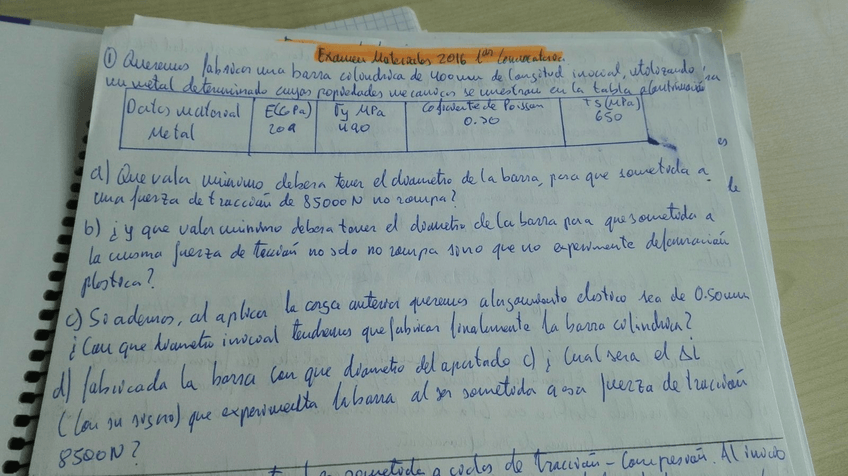 Examen Materiales 2016 1er Convocatoria.
① Queremos fabricar una barra cilindrica de 400mm de longitud inicial, utilizando
un metal determinado cuyas propiedades mecanicas se muestran en la tabla a continuación
Datos material E(GPa) σy MPa Coeficiente de Poisson TS(MPa)
Metal 209 490 0.30 650
es
a) Que valor minimo debera tener el diametro de la barra, para que sometida a
una fuerza de tracción de 85000N no rompa?
b) ¿y que valor minimo debera tener el diametro de la barra para que sometida a
la misma fuerza de tracción no solo no rompa sino que no experimente deformación
plastica?
c) Si ademas, al aplicar la carga anterior queremos alargamiento elastico sea de 0.50mm
¿Con que diametro inicial tendremos que fabricar finalmente la barra cilindrica?
d) fabricada la barra con que diametro del apartado c) ¿Cual sera el Δ
(Con su signo) que experimenta la barra al ser sometida a esa fuerza de tracción
8500N?
sometida a ciclos de tracción-compresión. Al inicio